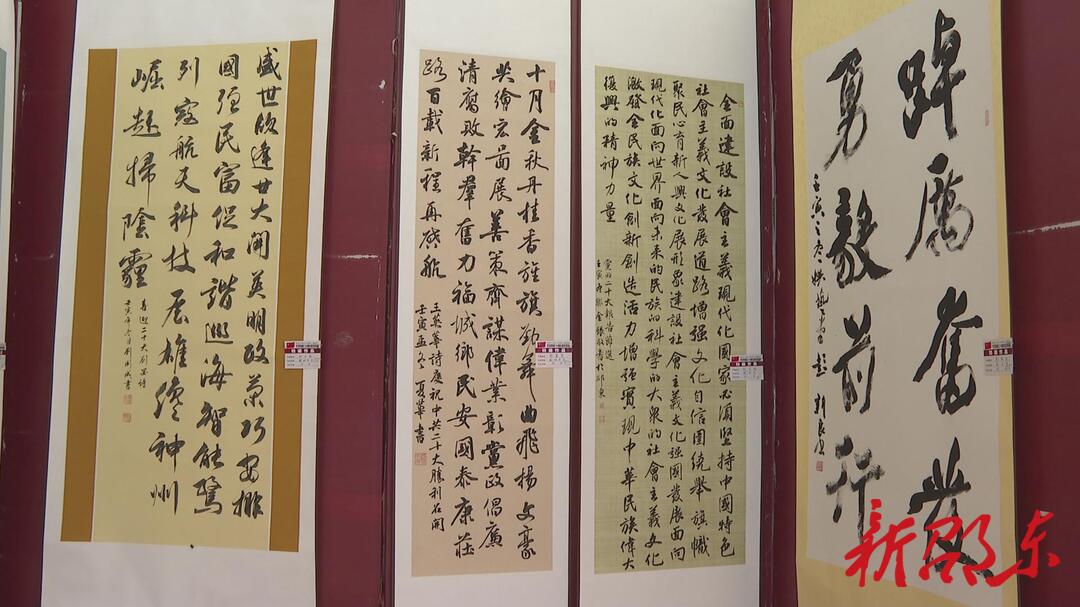 盛世欣逢廿大開英明政策巧安排
國強民富促和諧巡海智能驚
列寇航天科技展雄神州
崛起掃陰霾
喜迎二十大
十月金秋丹桂香旌旗勁舞曲飛揚文豪
共繪宏圖展善策齊謀偉業彰黨政倡廉
清腐敗幹羣奮力福城鄉民安國泰康莊
路百載新程再啟航
王英華詩慶祝中共二十大勝利召開
壬寅孟冬夏華書
全面建設社會主義現代化國家必須堅持中國特色
社會主義文化發展道路增強文化自信圍繞舉旗幟
聚民心育新人興文化展形象建設社會主義文化強國發展面向
現代化面向世界面向未來的民族的科學的大衆的社會主義文化
激發全民族文化創新創造活力增強實現中華民族偉大
復興的精神力量
黨的二十大報告節選
踔厲奮發
勇毅前行
新邵东